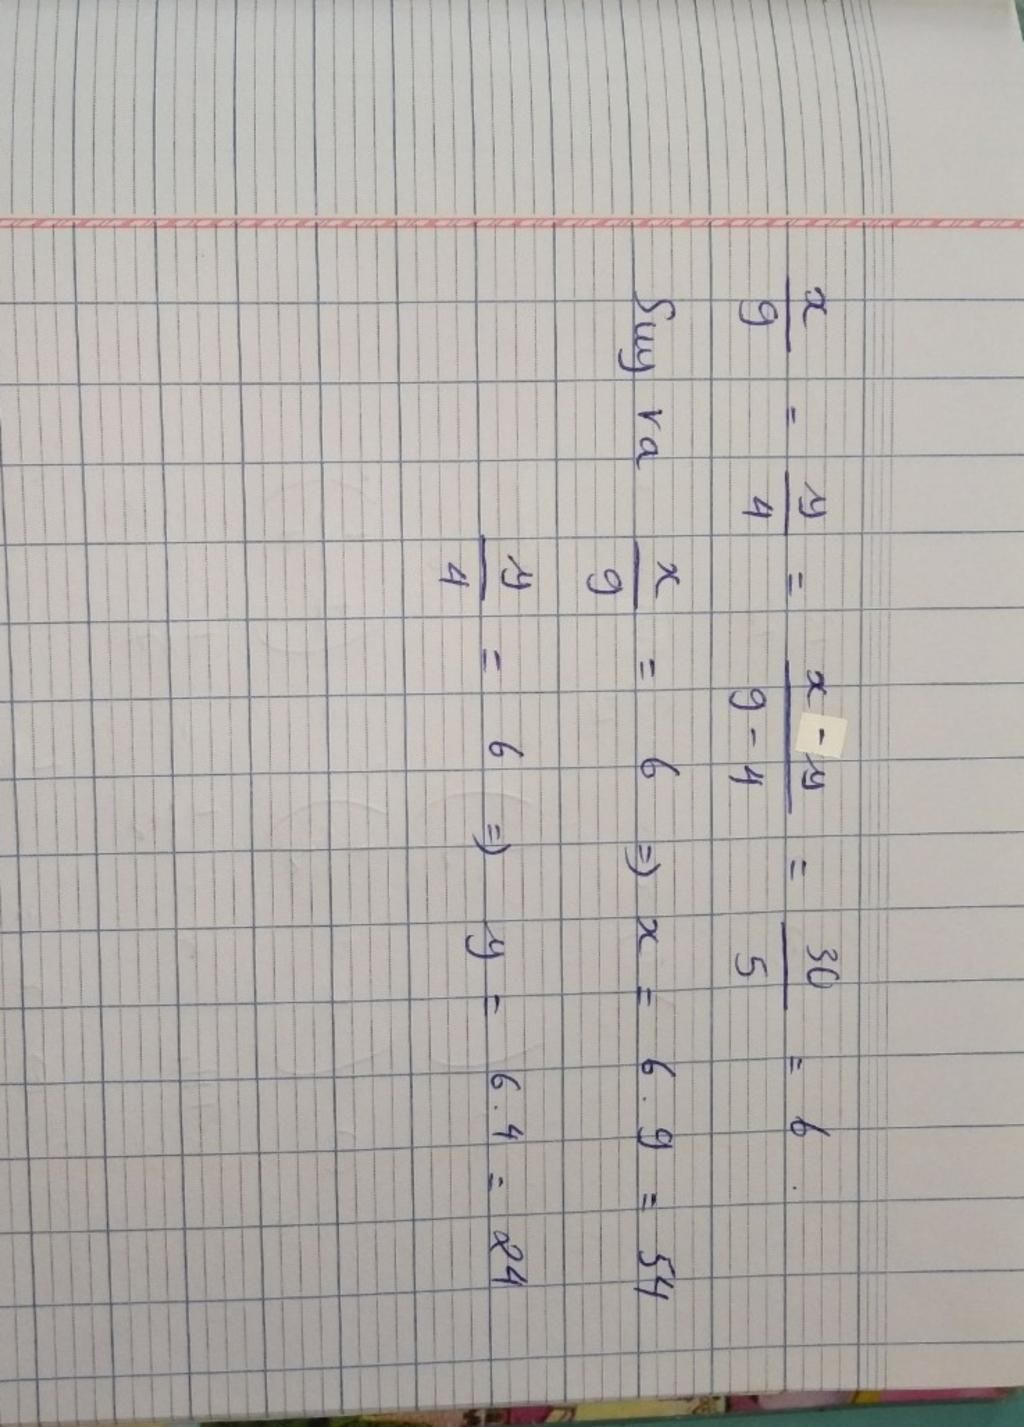 x/9 = y/4 = x - y/9 - 4 = 30/5 = 6.
Suy ra x/9 = 6 => x = 6 . 9 = 54
y/4 = 6 => y = 6 . 4 = 24